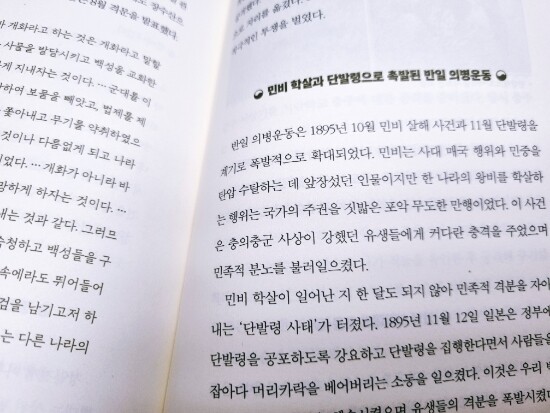 8월 격문을 발표했다.
개화라고 하는 것은 개화라고 말할
사물을 발달시키고 백성을 교화한
게 지내자는 것이다. … 군대를 이
하여 보물을 빼앗고, 법제를 제
쫓아내고 무기를 약취하였으
것이나 다름없게 되고 나라
었다. … 개화가 아니라 바
망하게 하자는 것이다. …
내는 것과 같다. 그러므
숙청하고 백성들을 구
속에라도 뛰어들어
검을 남기고저 하
는 다른 나라의
로 자리를 옮겼다.
적극적인 투쟁을 벌였다.
민비 학살과 단발령으로 촉발된 반일 의병운동
반일 의병운동은 1895년 10월 민비 살해 사건과 11월 단발령을
계기로 폭발적으로 확대되었다. 민비는 사대 매국 행위와 민중을
탄압 수탈하는 데 앞장섰던 인물이지만 한 나라의 왕비를 학살하
는 행위는 국가의 주권을 짓밟은 포악 무도한 만행이었다. 이 사건
은 충의충군 사상이 강했던 유생들에게 커다란 충격을 주었으며
민족적 분노를 불러일으켰다.
민비 학살이 일어난 지 한 달도 되지 않아 민족적 격분을 자아
내는 ‘단발령 사태’가 터졌다. 1895년 11월 12일 일본은 정부에
단발령을 공포하도록 강요하고 단발령을 집행한다면서 사람들을
잡아다 머리카락을 베어버리는 소동을 일으켰다. 이것은 우리
유생들의 격분을 폭발시켰